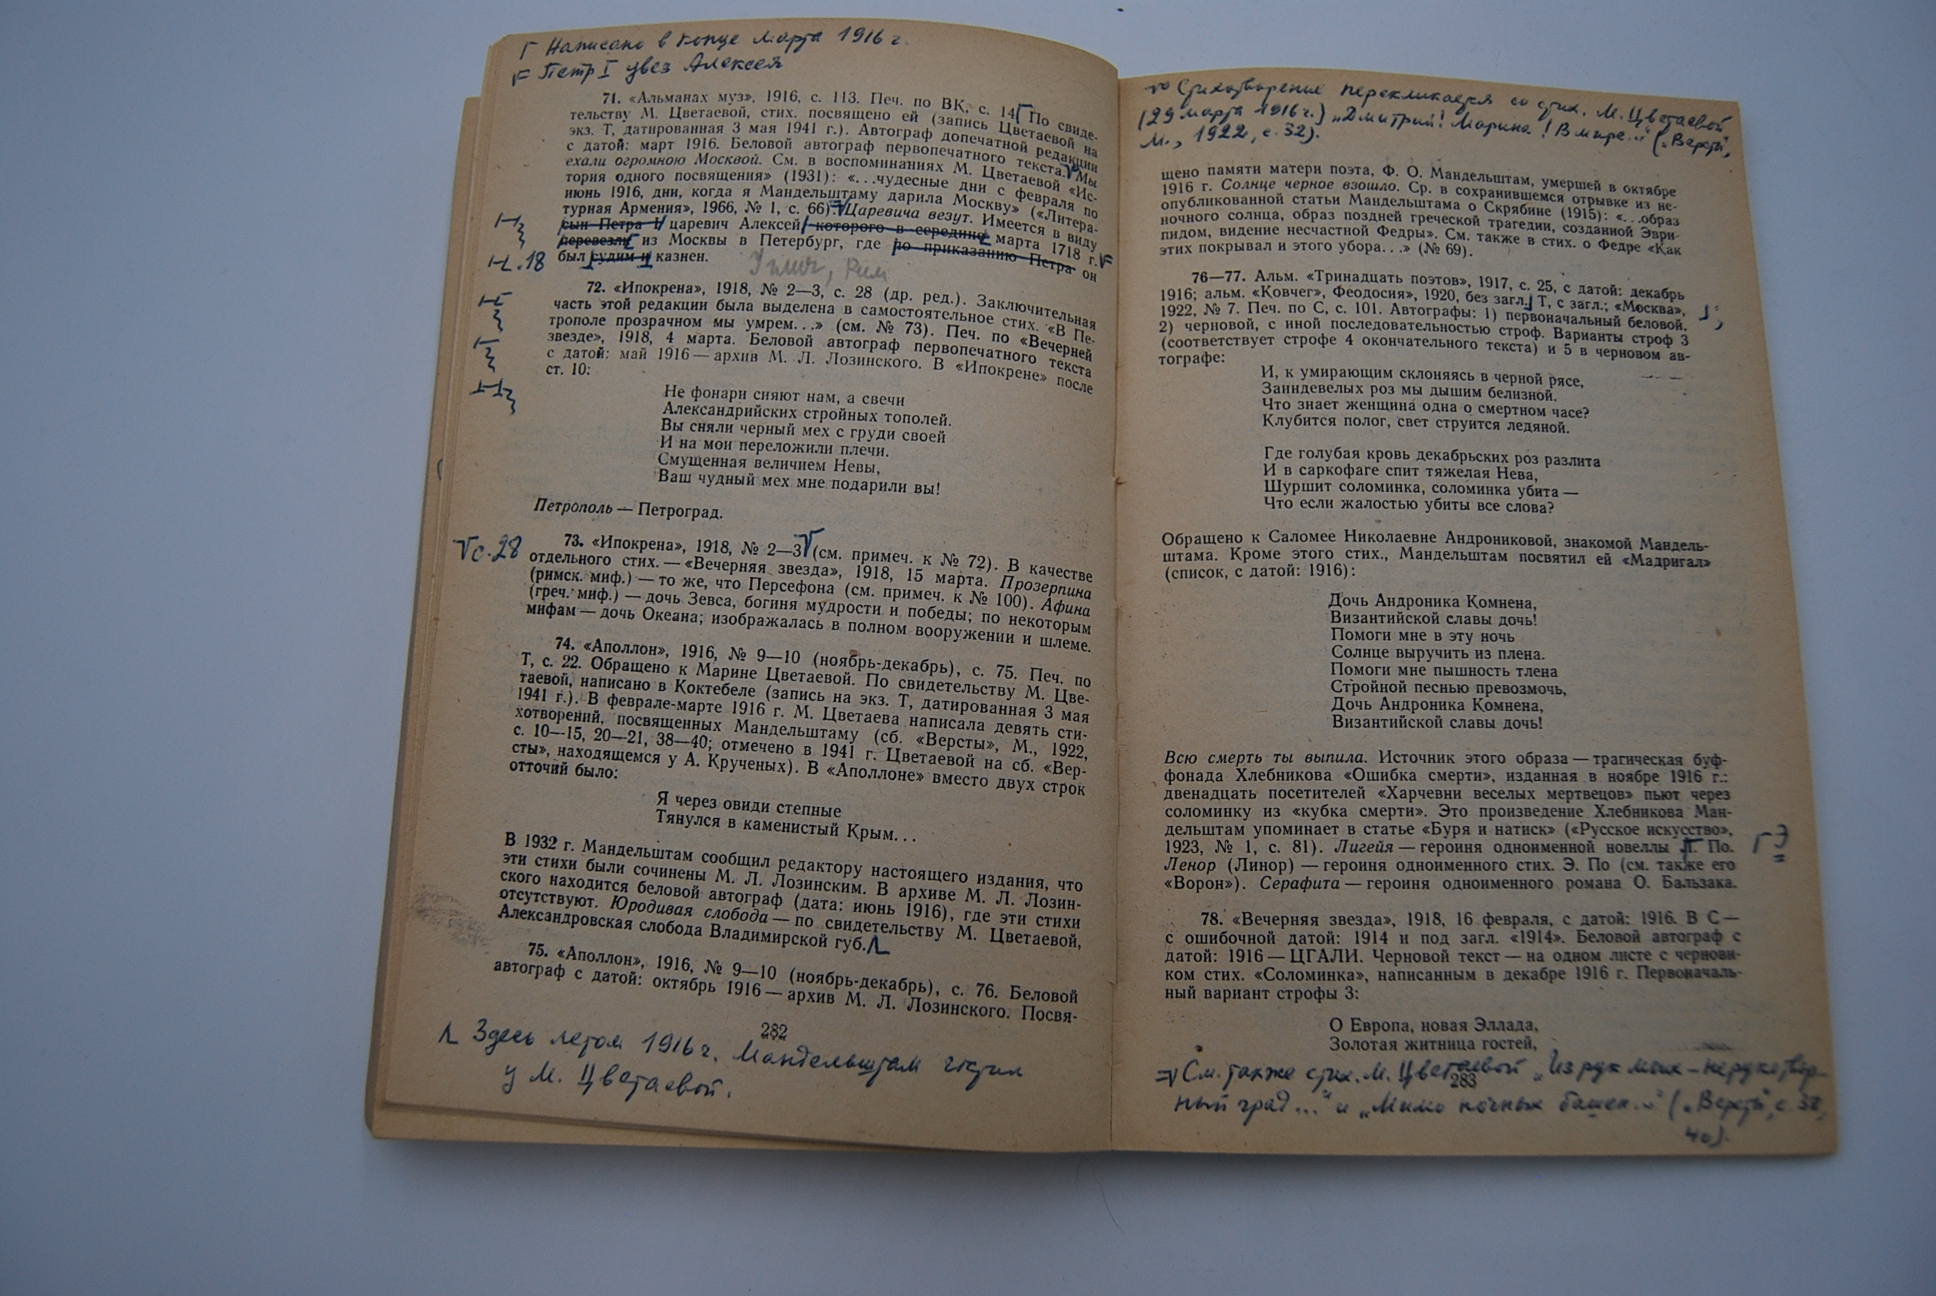 Г Написано в конце марта 1916 г.
Петр I увез Алексея
71. «Альманах муз», 1916, с. 113. Печ. по ВК, с. 14 По свиде-
тельству М. Цветаевой, стих. посвящено ей (запись Цветаевой на
экз. Т, датированная 3 мая 1941 г.). Автограф допечатной редакции
с датой: март 1916. Беловой автограф первопечатного текста. Мы
ехали огромною Москвой. См. в воспоминаниях М. Цветаевой «Ис-
тория одного посвящения» (1931): «...чудесные дни с февраля по
июнь 1916, дни, когда я Мандельштаму дарила Москву» («Литера-
турная Армения», 1966, № 1, с. 66). Царевича везут. Имеется в виду
сын Петра I царевич Алексей, которого в середине марта 1718 г.
перевезли из Москвы в Петербург, где по приказанию Петра он
был судим и казнен.
Углич, Рим
18
72. «Ипокрена», 1918, № 2—3, с. 28 (др. ред.). Заключительная
часть этой редакции была выделена в самостоятельное стих. «В Пе-
трополе прозрачном мы умрем...» (см. № 73). Печ. по «Вечерней
звезде», 1918, 4 марта. Беловой автограф первопечатного текста
с датой: май 1916 — архив М. Л. Лозинского. В «Ипокрене» после
ст. 10:
Не фонари сияют нам, а свечи
Александрийских стройных тополей.
Вы сняли черный мех с груди своей
И на мои переложили плечи.
Смущенная величием Невы,
Ваш чудный мех мне подарили вы!
Петрополь — Петроград.
с. 28
73. «Ипокрена», 1918, № 2—3 (см. примеч. к № 72). В качестве
отдельного стих. — «Вечерняя звезда», 1918, 15 марта. Прозерпина
(римск. миф.) — то же, что Персефона (см. примеч. к № 100). Афина
(греч. миф.) — дочь Зевса, богиня мудрости и победы; по некоторым
мифам — дочь Океана; изображалась в полном вооружении и шлеме.
74. «Аполлон», 1916, № 9—10 (ноябрь-декабрь), с. 75. Печ. по
Т, с. 22. Обращено к Марине Цветаевой. По свидетельству М. Цве-
таевой, написано в Коктебеле (запись на экз. Т, датированная 3 мая
1941 г.). В феврале-марте 1916 г. М. Цветаева написала девять сти-
хотворений, посвященных Мандельштаму (сб. «Версты», М., 1922,
с. 10—15, 20—21, 38—40; отмечено в 1941 г. Цветаевой на сб. «Вер-
сты», находящемся у А. Крученых). В «Аполлоне» вместо двух строк
отточий было:
Я через овиди степные
Тянулся в каменистый Крым...
В 1932 г. Мандельштам сообщил редактору настоящего издания, что
эти стихи были сочинены М. Л. Лозинским. В архиве М. Л. Лозин-
ского находится беловой автограф (дата: июнь 1916), где эти стихи
отсутствуют. Юродивая слобода — по свидетельству М. Цветаевой,
Александровская слобода Владимирской губ.
75. «Аполлон», 1916, № 9—10 (ноябрь-декабрь), с. 76. Беловой
автограф с датой: октябрь 1916 — архив М. Л. Лозинского. Посвя-
282
Здесь летом 1916 г. Мандельштам гостил
у М. Цветаевой.
Стихотворение перекликается со стих. М. Цветаевой
(29 марта 1916 г.) „Дмитрий! Марина! В мире..." („Версты",
М., 1922, с. 32).
щено памяти матери поэта, Ф. О. Мандельштам, умершей в октябре
1916 г. Солнце черное взошло. Ср. в сохранившемся отрывке из не-
опубликованной статьи Мандельштама о Скрябине (1915): «...образ
ночного солнца, образ поздней греческой трагедии, созданной Эври-
пидом, видение несчастной Федры». См. также в стих. о Федре «Как
этих покрывал и этого убора...» (№ 69).
76—77. Альм. «Тринадцать поэтов», 1917, с. 25, с датой: декабрь
1916; альм. «Ковчег», Феодосия», 1920, без загл. Т, с загл.; «Москва»,
1922, № 7. Печ. по С, с. 101. Автографы: 1) первоначальный беловой,
2) черновой, с иной последовательностью строф. Варианты строф 3
(соответствует строфе 4 окончательного текста) и 5 в черновом ав-
тографе:
И, к умирающим склоняясь в черной рясе,
Заиндевелых роз мы дышим белизной.
Что знает женщина одна о смертном часе?
Клубится полог, свет струится ледяной.
Где голубая кровь декабрьских роз разлита
И в саркофаге спит тяжелая Нева,
Шуршит соломинка, соломинка убита —
Что если жалостью убиты все слова?
Обращено к Саломее Николаевне Андрониковой, знакомой Мандель-
штама. Кроме этого стих., Мандельштам посвятил ей «Мадригал»
(список, с датой: 1916):
Дочь Андроника Комнена,
Византийской славы дочь!
Помоги мне в эту ночь
Солнце выручить из плена.
Помоги мне пышность тлена
Стройной песнью превозмочь,
Дочь Андроника Комнена,
Византийской славы дочь!
Всю смерть ты выпила. Источник этого образа — трагическая буф-
фонада Хлебникова «Ошибка смерти», изданная в ноябре 1916 г.:
двенадцать посетителей «Харчевни веселых мертвецов» пьют через
соломинку из «кубка смерти». Это произведение Хлебникова Ман-
дельштам упоминает в статье «Буря и натиск» («Русское искусство»,
1923, № 1, с. 81). Лигейя — героиня одноименной новеллы По.
Э
Ленор (Линор) — героиня одноименного стих. Э. По (см. также его
«Ворон»). Серафита — героиня одноименного романа О. Бальзака.
78. «Вечерняя звезда», 1918, 16 февраля, с датой: 1916. В С —
с ошибочной датой: 1914 и под загл. «1914». Беловой автограф с
датой: 1916 — ЦГАЛИ. Черновой текст — на одном листе с чернови-
ком стих. «Соломинка», написанным в декабре 1916 г. Первоначаль-
ный вариант строфы 3:
О Европа, новая Эллада,
Золотая житница гостей,
283
См. также стих. М. Цветаевой „Из рук моих — нерукотвор-
ный град..." и „Мимо ночных башен..." („Версты", с. 38,
40).